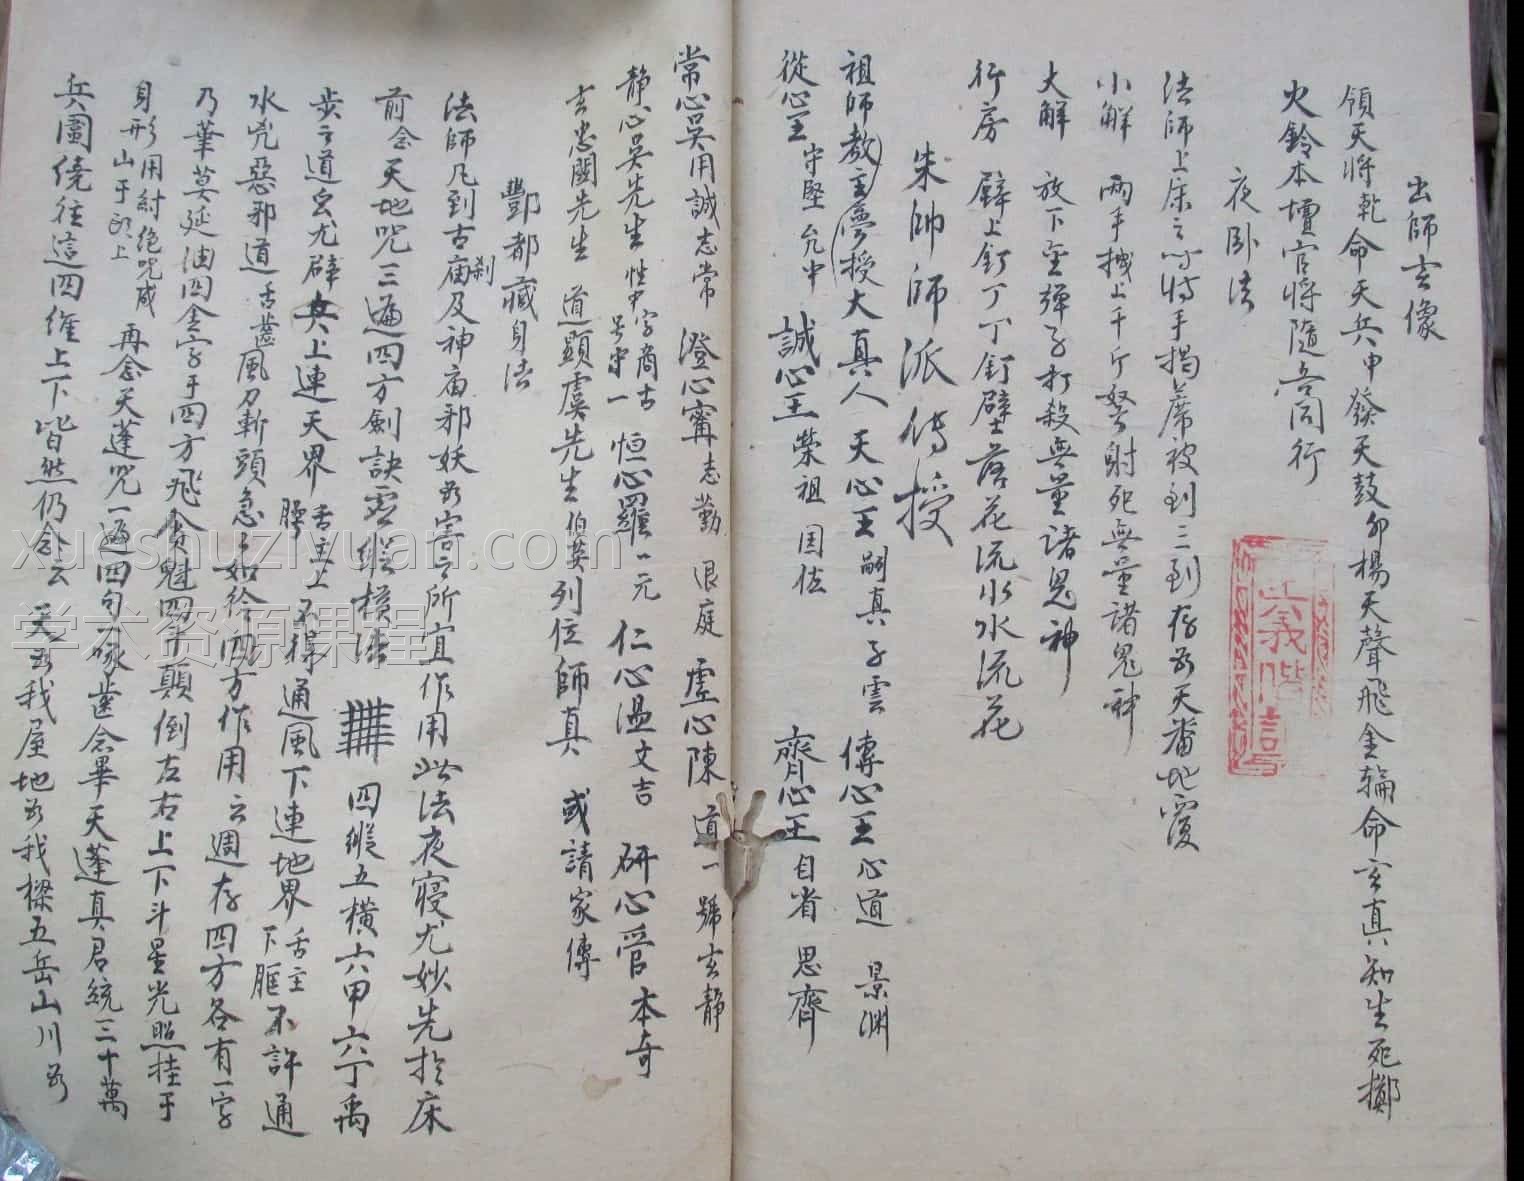 出師玄像
領天將乾命天兵申發天鼓卯楊天聲飛金輪命玄真知生死擲
火鈴本壇官將隨吾同行
夜卧法
法師上床之時將手揭蓆被到三到存爲天番地覆
小解 兩手挽上千斤弩射死無量諸鬼神
大解 放下金彈子打殺無量諸鬼神
行房 壁上釘丁丁釘壁落花流水水流花
朱帥師派傳授
祖師教主夢授大真人 天心王嗣真子雲 傳心王心道 景淵
從心王守堅允中 誠心王榮祖國佐 齊心王自省思齊
常心吳用誠志常 澄心甯志勤退庭 虛心陳道一號玄靜
静心吳先生性中字商古號守一 恒心羅一元 仁心溫文吉 研心管本奇
玄忠關先生 道顯虞先生伯英列位師真 或請家傳
酆都藏身法
法師凡到古廟刹及神廟邪妖爲害之所宜作用此法夜寢尤妙先於床
前念天地咒三遍四方劍訣虛縱橫法 四縱五橫六甲六丁禹
步之道蚩尤辟兵上連天界舌主上腭不得通風下連地界舌主下腭不許通
水兇惡邪道舌舊風刀斬頭急急如律四方作用之週存四方各有一字
乃華莫延油四金字于四方飛貪魁四斗顛倒左右上下斗星光照挂于
身形用紂絕咒咸山于頂上 再念天蓬咒一遍四句一啄齒念畢天蓬真君統三十萬
兵圍繞往這四維上下皆然仍念云 天爲我屋地爲我樑五岳山川爲
xueshuziyuan.com
学术资源课程